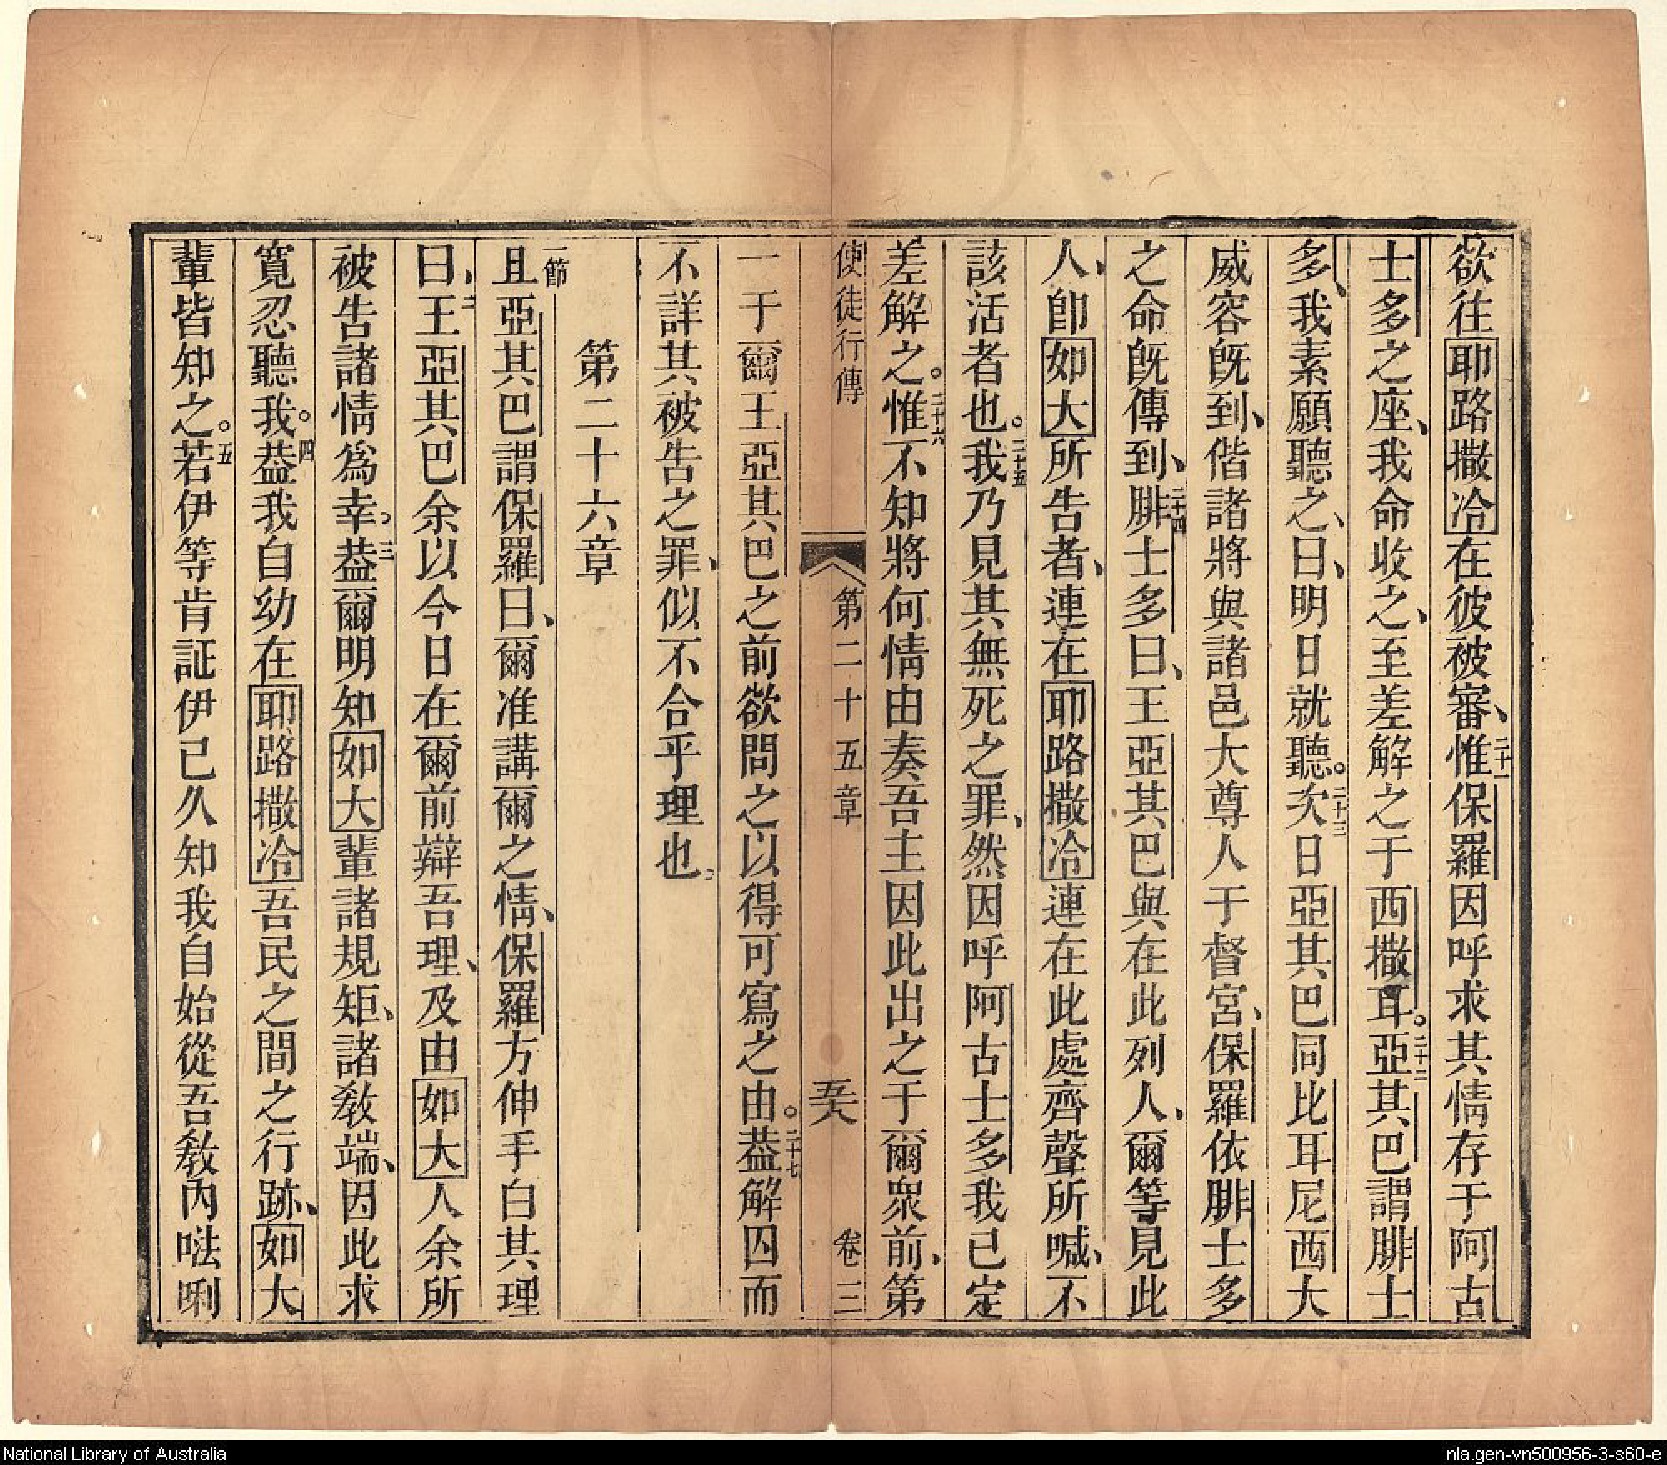 欲往耶路撒冷在彼被審、二十一惟保羅因呼求其情存于阿古
士多之座、我命收之、至差解之于西撒耳。二十二亞其巴謂腓士
多、我素願聽之、曰、明日就聽。二十三次日亞其巴同比耳尼西大
威容旣到、偕諸將與諸邑大尊人于督宮、保羅依腓士多
之命旣傳到、二十四腓士多曰、王亞其巴與在此列人、爾等見此
人、卽如大所告者、連在耶路撒冷連在此處齊聲所喊、不
該活者也。二十五我乃見其無死之罪、然因呼阿古士多我已定
差解之。二十六惟不知將何情由奏吾主因此出之于爾衆前、第
使徒行傳 第二十五章 五六 卷三
一于爾王亞其巴之前欲問之以得可寫之由。二十七葢解囚而
不詳其被告之罪、似不合乎理也
第二十六章
一節且亞其巴謂保羅曰、爾准講爾之情、保羅方伸手白其理
曰、二王亞其巴余以今日在爾前辯吾理、及由如大人余所
被告諸情爲幸。三葢爾明知如大輩諸規矩、諸教端、因此求
寬忍聽我。四葢我自幼在耶路撒冷吾民之間之行跡、如大
輩皆知之。五若伊等肯証伊已久知我自始從吾教內𠵽唎